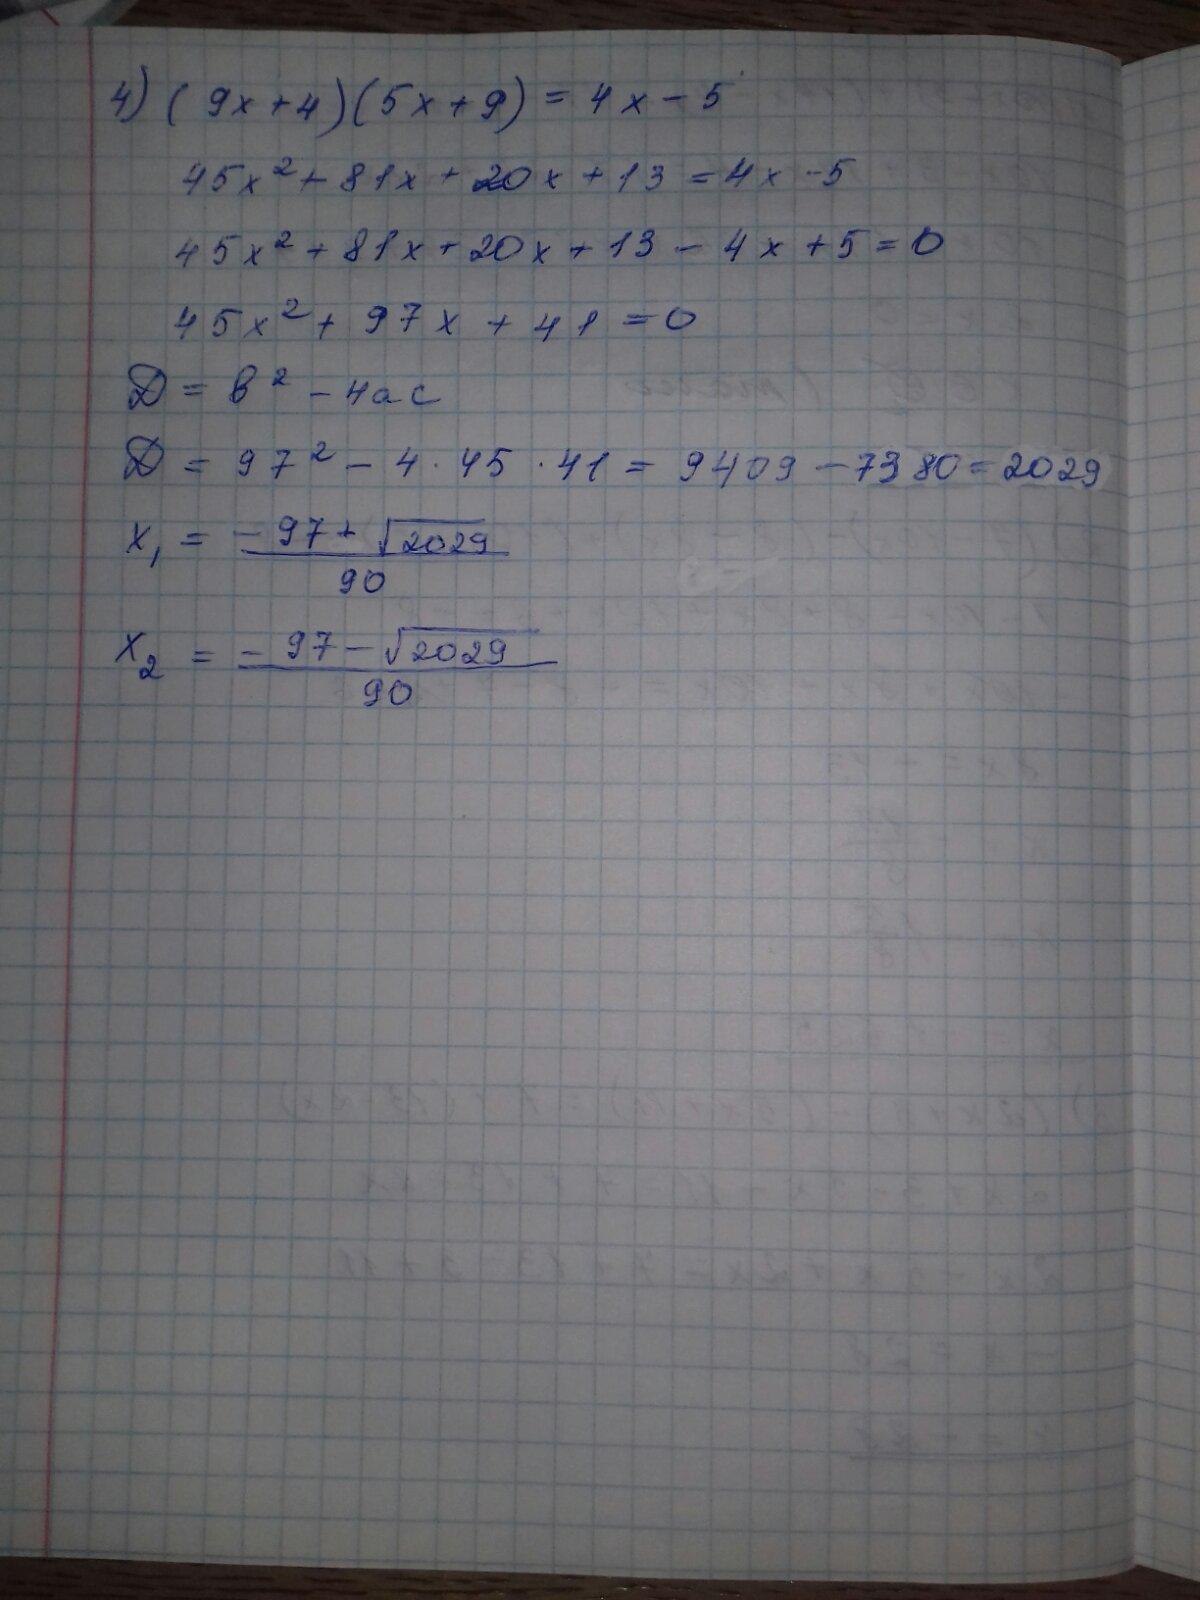 4) (9x+4)(5x+9) = 4x-5
45x²+81x+20x+13=4x-5
45x²+81x+20x+13-4x+5=0
45x²+97x+41=0
D=b²-4ac
D=97²-4·45·41=9409-7380=2029
x₁ = (-97+√2029)/90
x₂ = (-97-√2029)/90